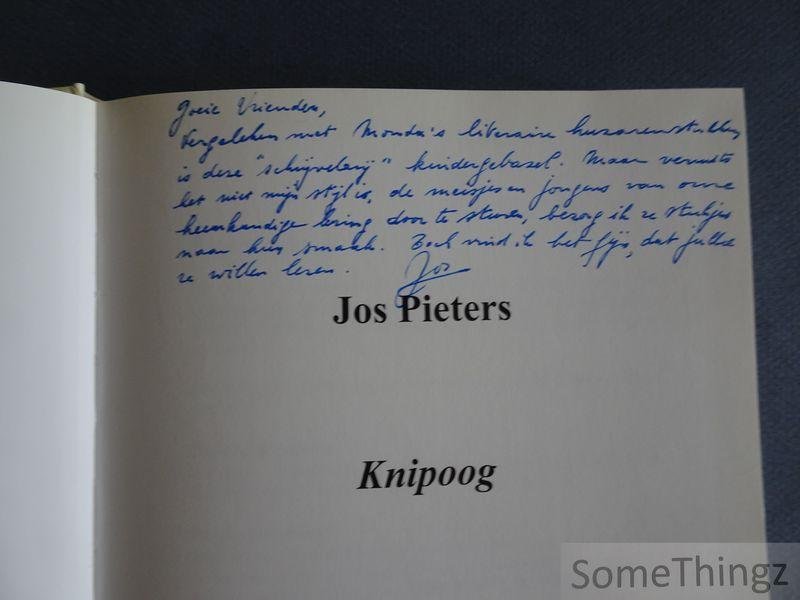 Goeie Vrienden,
Vergeleken met Monda's literaire huzarenstukken
is deze "schijvelarij" kindergebazel. Maar vermits
het niet mijn stijl is, de meisjes en jongens van onze
heemkundige kring door te sturen, bezorg ik ze stukjes
naar hun smaak. Toch vind ik het fijn, dat jullie
ze willen lezen. Jos
Jos Pieters
Knipoog
SomeThingz